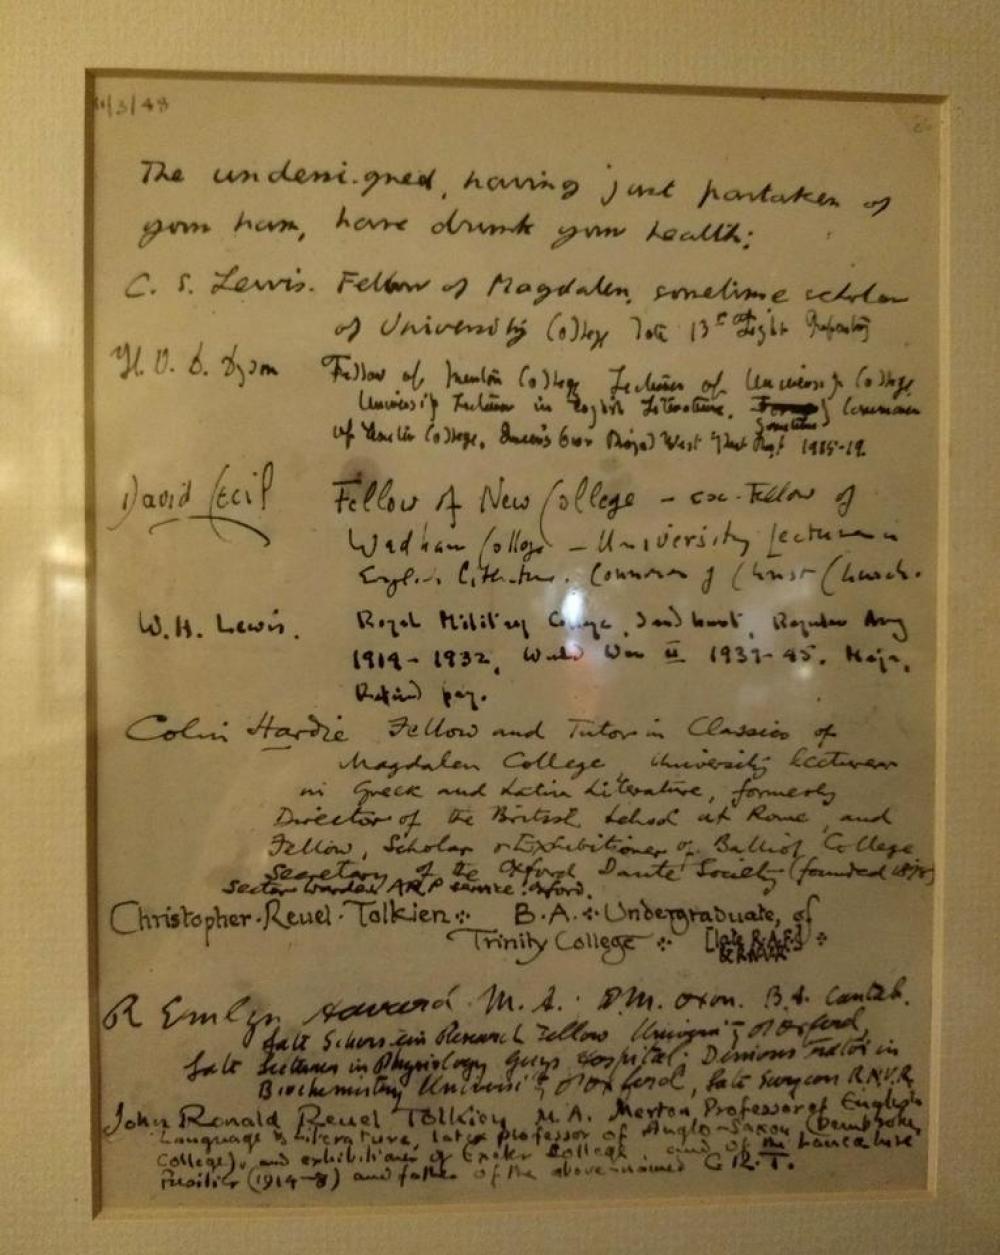 /3/48
The undersigned, having just partaken of
your ham, have drunk your health:
C. S. Lewis. Fellow of Magdalen, sometime scholar
of University College late 13th Light Infantry
H. V. D. Dyson Fellow of Merton College Lecturer of University College
University Lecturer in English Literature. Sometime Commoner
of Exeter College, Queen's Own Royal West Kent Regt 1915-19.
David Cecil Fellow of New College – ex-Fellow of
Wadham College – University Lecturer in
English Literature. Commoner of Christ Church.
W.H. Lewis. Royal Military College, Sandhurst, Regular Army
1914-1932, World War II 1939-45. Major,
Retired pay.
Colin Hardie Fellow and Tutor in Classics of
Magdalen College University lecturer
in Greek and Latin Literature, formerly
Director of the British School at Rome, and
Fellow, Scholar & Exhibitioner of Balliol College
Secretary of the Oxford Dante Society (founded 1876)
Sector Warden ARP service Oxford.
Christopher · Reuel · Tolkien B.A. Undergraduate, of
Trinity College [late R.A.F.]
& RNVR
R Emlyn Havard M.A. D.M. Oxon. B.A. Cantab.
Late Research Fellow University of Oxford,
Late Lecturer in Physiology Guys Hospital: Demonstrator in
Biochemistry University of Oxford, late Surgeon R.N.V.R.
John Ronald Reuel Tolkien M.A. Merton Professor of English
Language & Literature, late professor of Anglo-Saxon (Pembroke
College), and exhibitioner of Exeter College and of the Lancashire
Fusiliers (1914-8) and father of the above-named C.R.T.